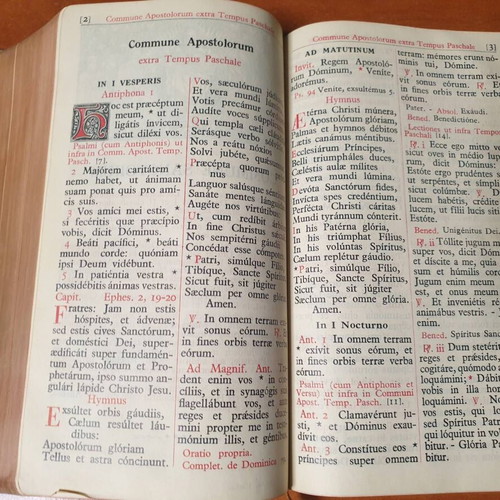 [2] Commune Apostolorum extra Tempus Paschale
Commune Apostolorum
extra Tempus Paschale
IN I VESPERIS
Antiphona 1
Hoc est præcéptum
meum, * ut di-
ligátis ínvicem,
sicut diléxi vos.
Psalmi (cum Antiphonis) ut
infra in Comm. Apost. Temp.
Pasch. [7].
2 Majórem caritátem *
nemo habet, ut ánimam
suam ponat quis pro amí-
cis suis.
3 Vos amíci mei estis, *
si fecéritis quæ præcípio
vobis, dicit Dóminus.
4 Beáti pacífici, * beáti
mundo corde: quóniam
ipsi Deum vidébunt.
5 In patiéntia vestra *
possidébitis ánimas vestras.
Capit. Ephes. 2, 19-20
Fratres: Jam non estis
hóspites, et ádvenæ;
sed estis cives Sanctórum,
et doméstici Dei, super-
ædificáti super fundamén-
tum Apostolórum et Pro-
phetárum, ipso summo an-
gulári lápide Christo Jesu.
Hymnus
Exsúltet orbis gáudiis,
Cælum resúltet láu-
dibus:
Apostolórum glóriam
Tellus et astra cóncinunt.
Vos, sæculórum
Et vera mundi
Votis precámur
Audíte voces
Qui templa
Serásque verbo
Nos a reátu
Solvi jubéte,
Præcépta quorum
nus
Languor salúsque
Sanáte mentes
Augéte nos
Ut, cum redíbit
In fine Christus
Nos sempitérni
Concédat esse
* Patri, simúlque
Tibíque, Sancte
Sicut fuit, sit júgiter
Sæclum per omne
Amen.
℣. In omnem terram
vit sonus eórum. ℟. Et
in fines orbis terræ verba
eórum.
Ad Magnif. Ant.
dent enim vos * in con-
cíliis, et in synagógis
flagellábunt vos, et ante
reges et prǽsides
mini propter me in testi-
mónium illis, et géntibus.
Oratio propria.
Complet. de Dominica
Commune Apostolorum extra Tempus Paschale [3]
AD MATUTINUM
Invit. Regem Apostoló-
rum Dóminum, * Veníte,
adorémus.
Ps. 94 Veníte, exsultémus
Hymnus
Ætérna Christi múnera,
Apostolórum glóriam,
Palmas et hymnos débitos
Lætis canámus méntibus.
Ecclesiárum Príncipes,
Belli triumpháles duces,
Cæléstis aulæ mílites
Et vera mundi lúmina.
Devóta Sanctórum fides,
Invícta spes credéntium,
Perfécta Christi cáritas
Mundi tyránnum cónterit.
In his Patérna glória,
In his triúmphat Fílius,
In his volúntas Spíritus,
Cælum replétur gáudio.
* Patri, simúlque Fílio,
Tibíque, Sancte Spíritus,
Sicut fuit, sit júgiter
Sæclum per omne glória.
Amen.
In I Nocturno
Ant. 1 In omnem terram
* exívit sonus eórum, et
in fines orbis terræ verba
eórum.
Psalmi (cum Antiphonis et
Versu) ut infra in Communi
Apost. Temp. Pasch. [11].
Ant. 2 Clamavérunt ju-
sti, * et Dóminus exau-
dívit eos.
Ant. 3 Constítues eos *
príncipes super omnem
terram: mémores erunt nó-
minis tui, Dómine.
℣. In omnem terram exí-
vit sonus eórum. ℟. Et
in fines orbis terræ verba
eórum.
Pater. - Absol. Exáudi.
Bened. Benedictióne.
Lectiones ut infra Temp.
Pasch. [14].
℟. i Ecce ego mitto vos
sicut oves in médio
rum, dicit Dóminus:
Estóte ergo prudéntes
ut serpéntes, et símplices
sicut colúmbæ. ℣. Dum
lucem habétis, crédite
cem, ut fílii lucis sitis.
Estóte.
Bened. Unigénitus Dei.
℟. ii Tóllite jugum meum
super vos, dicit Dóminus,
et díscite a me, quia
sum et húmilis corde:
Jugum enim meum
est, et onus meum
℣. Et inveniétis réquiem
animábus vestris. -
enim.
Bened. Spíritus Sancti
℟. iii Dum stetéritis
reges et prǽsides,
cogitáre, quómodo
loquámini; * Dábitur
vobis in illa hora,
℣. Non
vos estis, qui
sed Spíritus Patris
qui lóquitur in vobis.
tur. - Glória Patri.